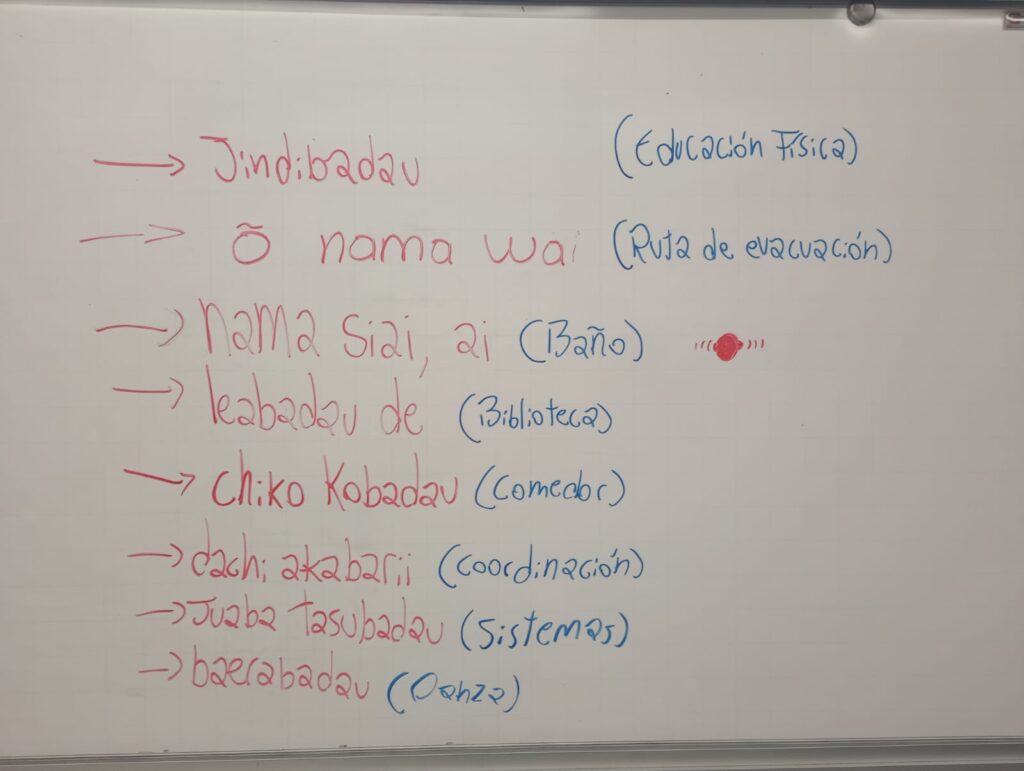 → Jindibadau (Educación Física)
→ õ nama wai (Ruta de evacuación)
→ nama siai, ai (Baño)
→ leabadau de (Biblioteca)
→ chiko kobadau (comedor)
→ dachi akabarii (coordinación)
→ Juaba tasubadau (sistemas)
→ baerabadau (Danza)